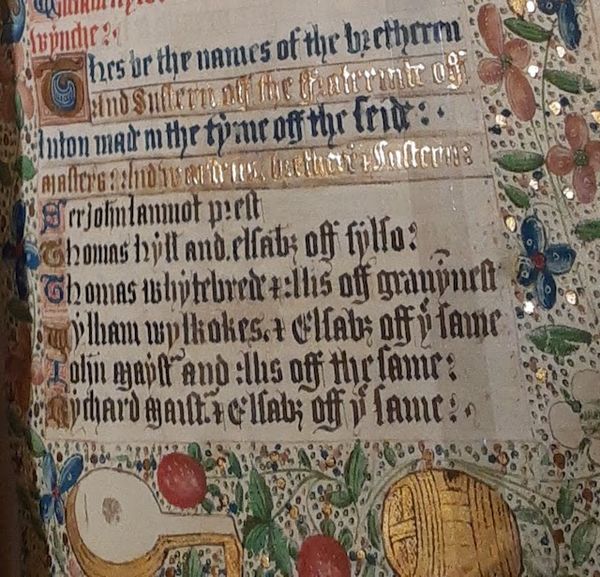 wynche :
Thes be the names of the bretheren
And Sustern off the ffraternite off
luton mad in the tyme off the seid :
masters : And wardens, brether & Susterns :
Ser john lammot prest
Thomas hyll and elsabȝ off sylso :
Thomas whytebrede & Alis off grauynest
Wylham wylkokes & Elsabȝ off yͤ same
John mayst and Alis off the same :
Rychard maist & Elsabȝ off yͤ same :